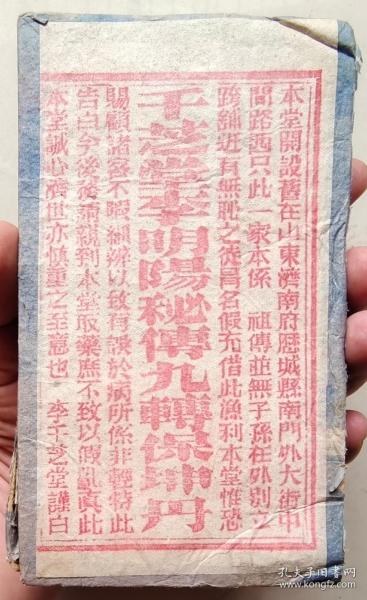 本堂開設舊在山東濟南府歷城縣南門外大街中
間路西只此一家本係 祖傳並無子孫在外別立
跨舖近有無恥之徒冐名假充借此漁利本堂惟恐
千芝堂李明陽秘傳九轉保坤丹
賜顧諸客不暇細察以致有誤於病所係非輕特此
告白今後務須親到本堂取藥庶不致以假亂真此
本堂誠心濟世亦慎重之至意也 李千芝堂謹白
孔夫子旧书网